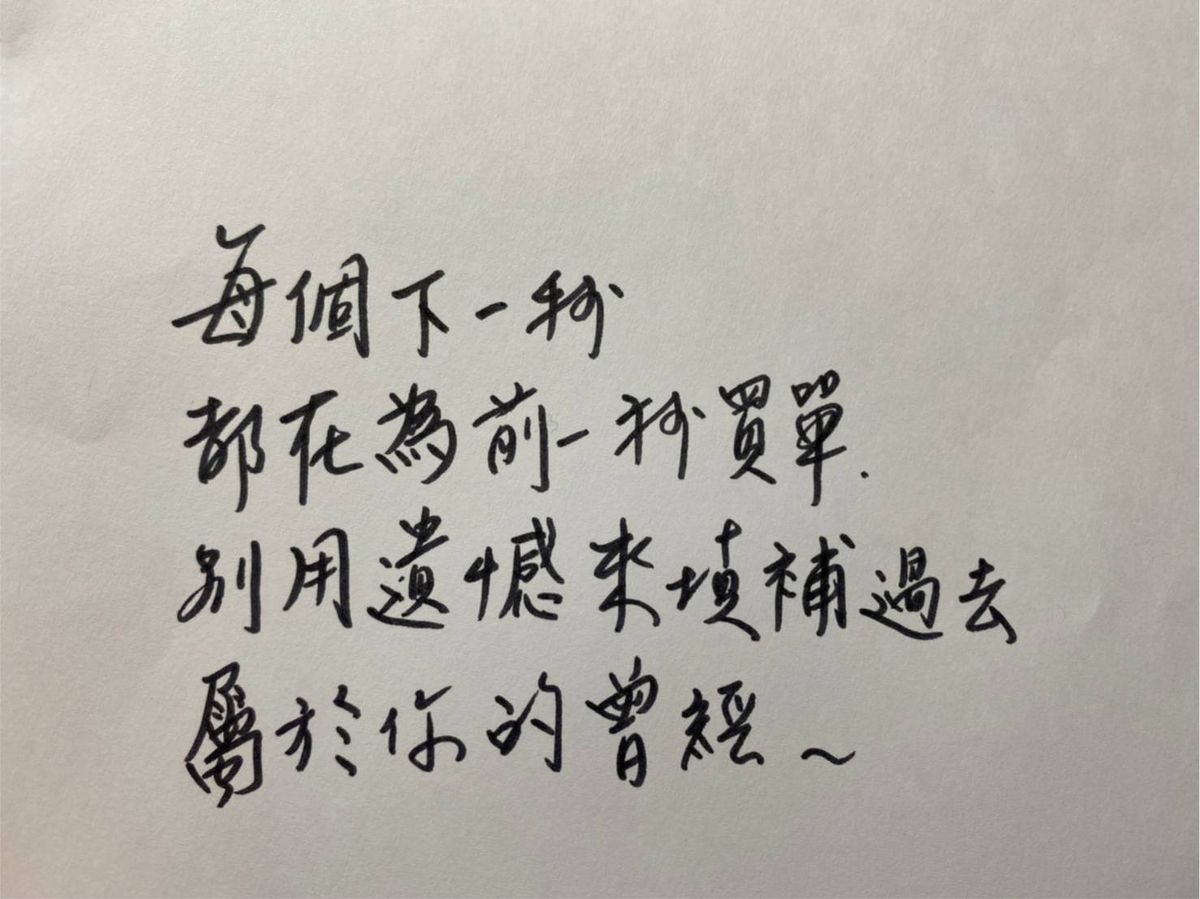 每個下一秒
都在為前一秒買單.
別用遺憾來填補過去
屬於你的曾經~